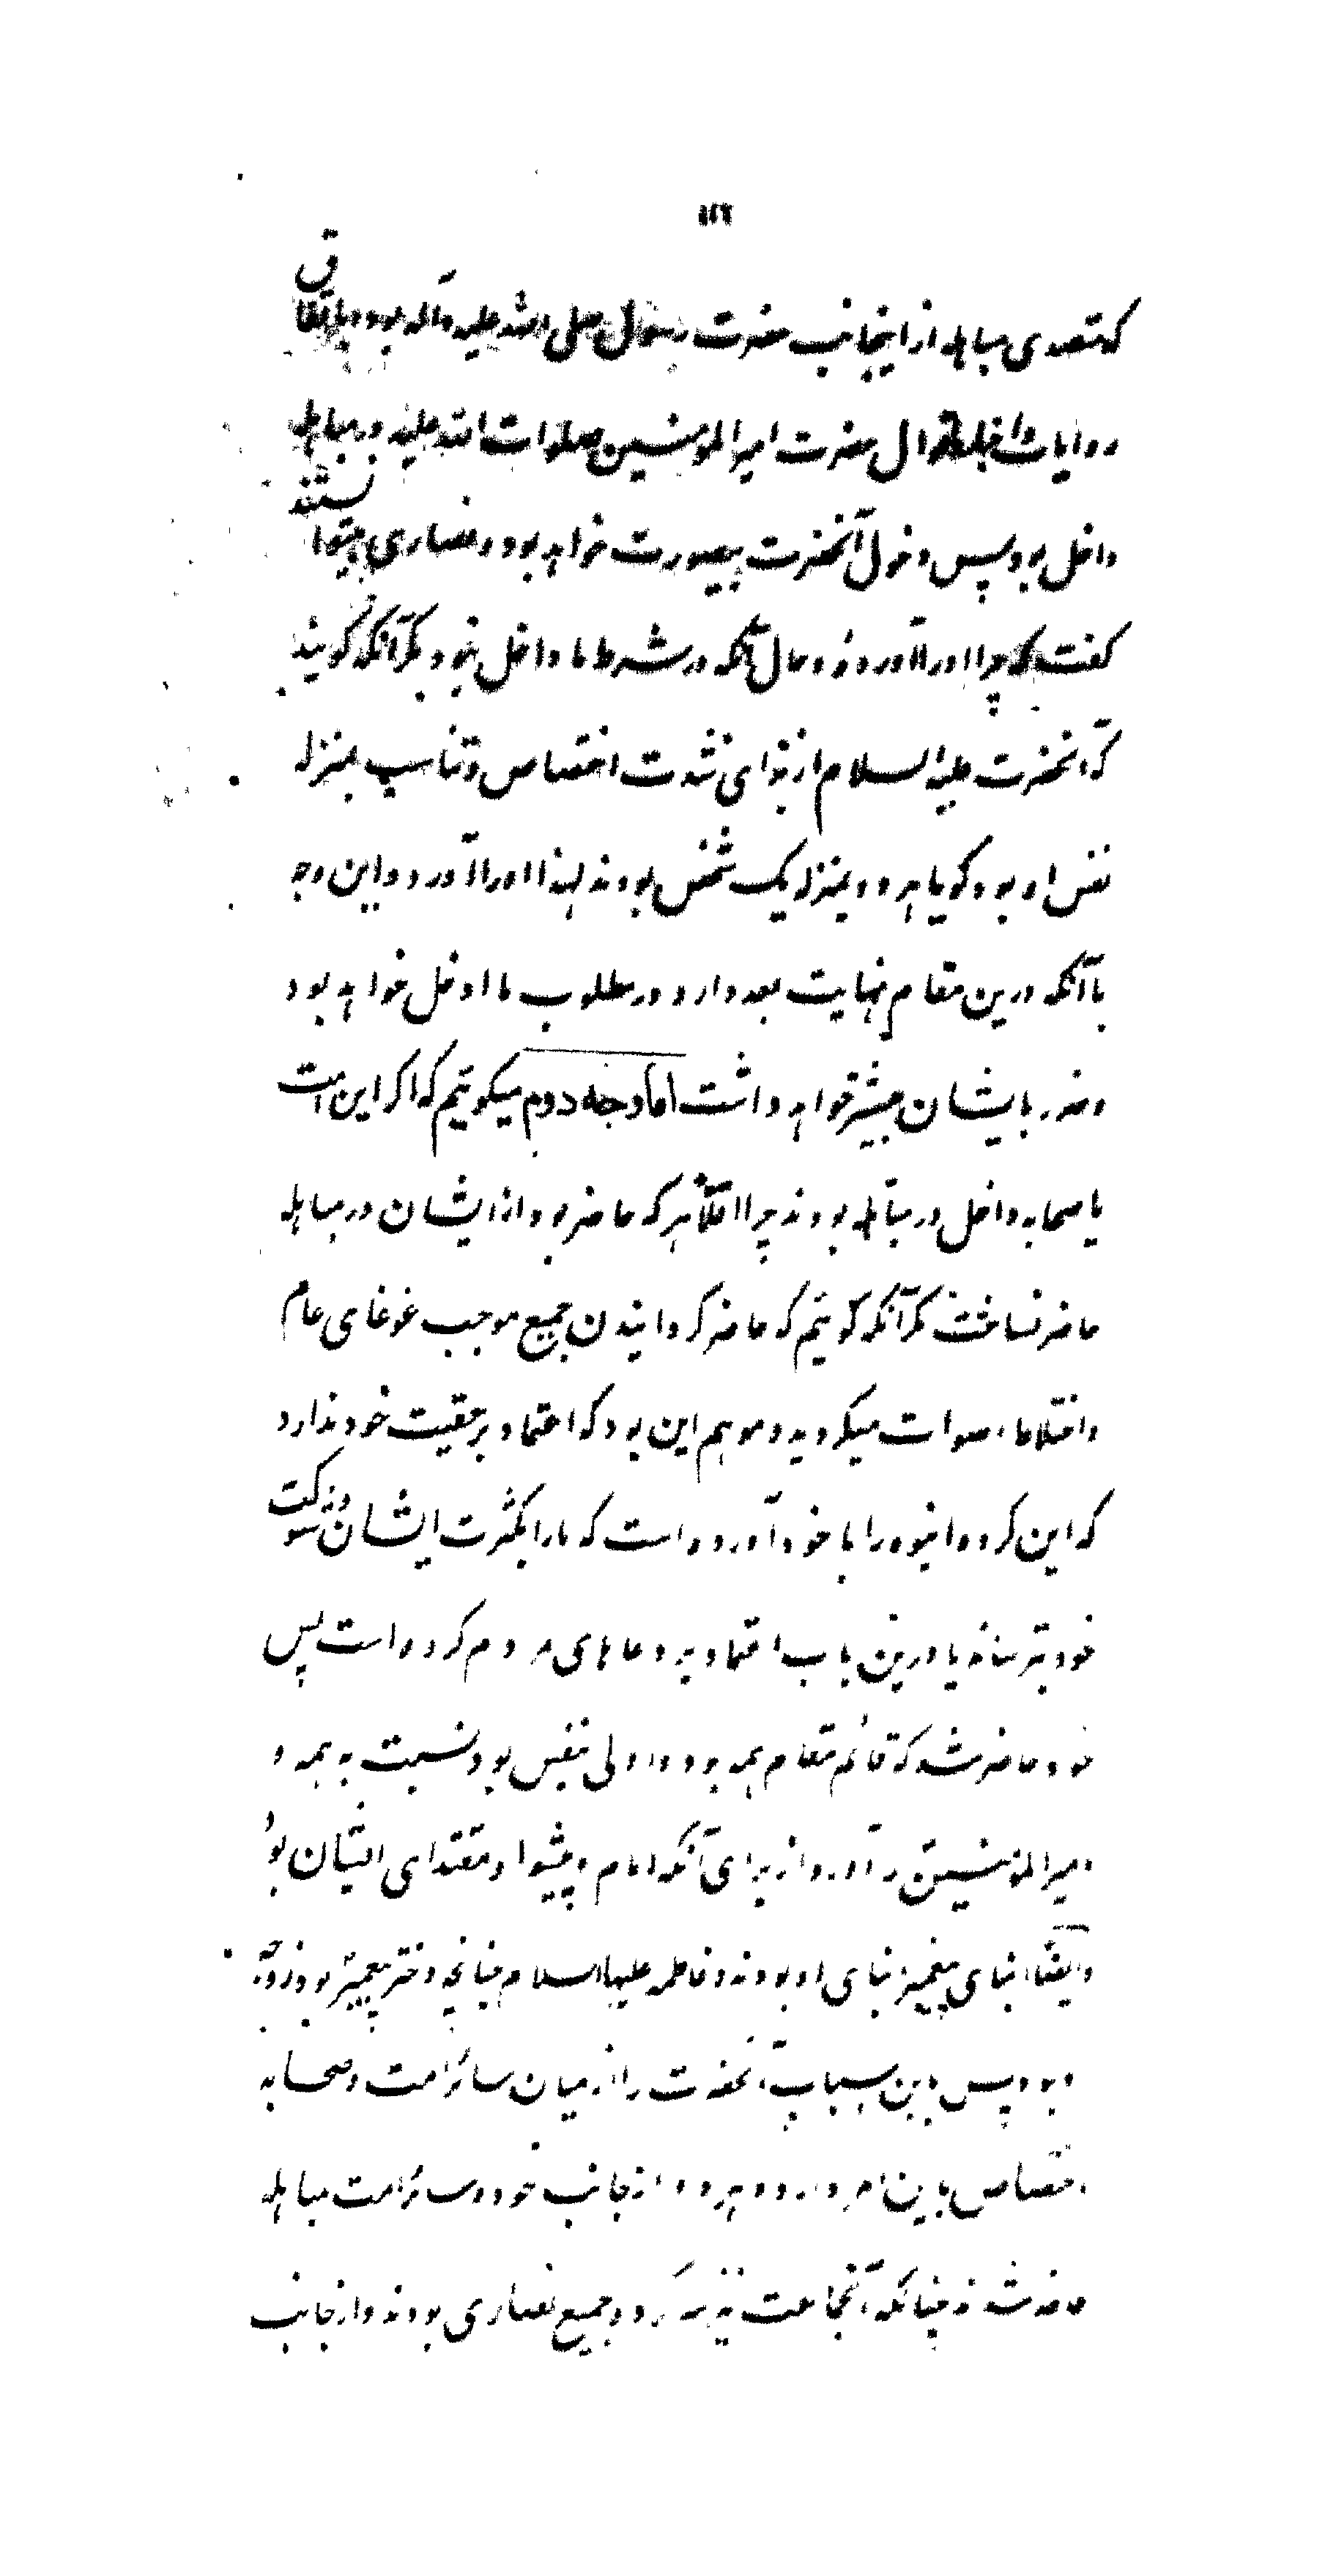 ١١٢
که متصدی مباهله از اینجانب حضرت رسول صلی الله علیه وآله بود و باتفاق
روایات و اقوال حضرت امیرالمؤمنین صلوات الله علیه در مباهله
داخل بود پس دخول آنحضرت بیصورت خواهد بود و نصاری میتوانستند
گفت که چرا او را آوردهٔ و حال آنکه در شرط ما داخل نبود مگر آنکه گویند
که آنحضرت علیه السلام از برای شدت اختصاص و تناسب بمنزله
نفس او بود گویا هر دو بمنزله یک شخص بودند لهذا او را آورد و این وجه
با آنکه درین مقام نهایت بعد دارد در مطلوب ما ادخل خواهد بود
و ضرر بایشان بیشتر خواهد داشت اما وجه دوم میگوئیم که اگر این امت
یا صحابه داخل در مباهله بودند چرا اقلاً هر که حاضر بود از ایشان در مباهله
حاضر نساخت مگر آنکه گوئیم که حاضر گردانیدن جمیع موجب غوغای عام
و اختلاط اصوات میگردید و موهم این بود که اعتماد بر حقیت خود ندارد
که این گروه انبوه را با خود آورده است که ما را بکثرت ایشان و شوکت
خود بترساند یا درین باب اعتماد بر دعاهای مردم کرده است پس
خود حاضر شد که قائم مقام همه بود و اولی بنفس بود نسبت به همه و
امیرالمؤمنین را آورد از برای آنکه امام و پیشوا و مقتدای ایشان بود
و ایضاً ابنای پیغمبر ابنای او بودند و فاطمه علیها السلام چنانچه دختر پیغمبر بود زوجهٔ
او بود پس باین سبب آنحضرت را از میان سائر امت و صحابه
اختصاص باین امر داد و هر دو از جانب خود و سائر امت مباهله
حاضر شدند چنانکه آنجماعت نیز سر کرده جمیع نصاری بودند و از جانب